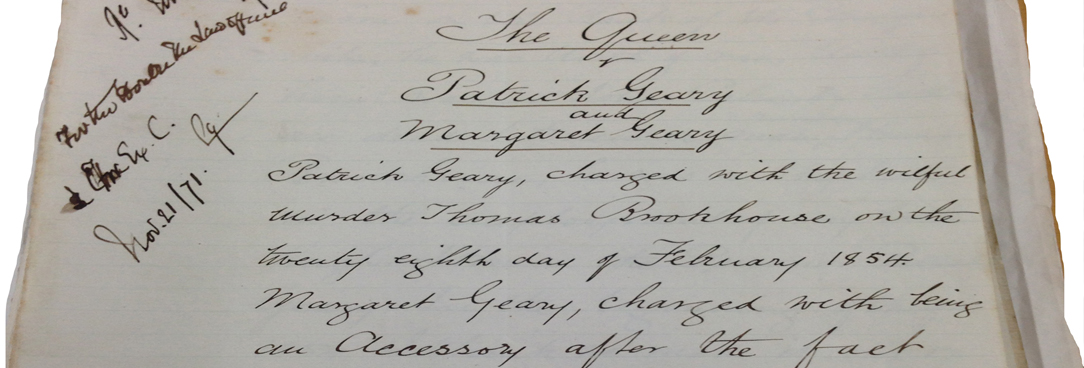 The Queen
v
Patrick Geary
and
Margaret Geary
Patrick Geary, charged with the wilful
murder Thomas Brookhouse on the
twenty eighth day of February 1854.
Margaret Geary, charged with being
an Accessory after the fact
For the
the Law Officers
Ex. C.
Nov. 21/71.